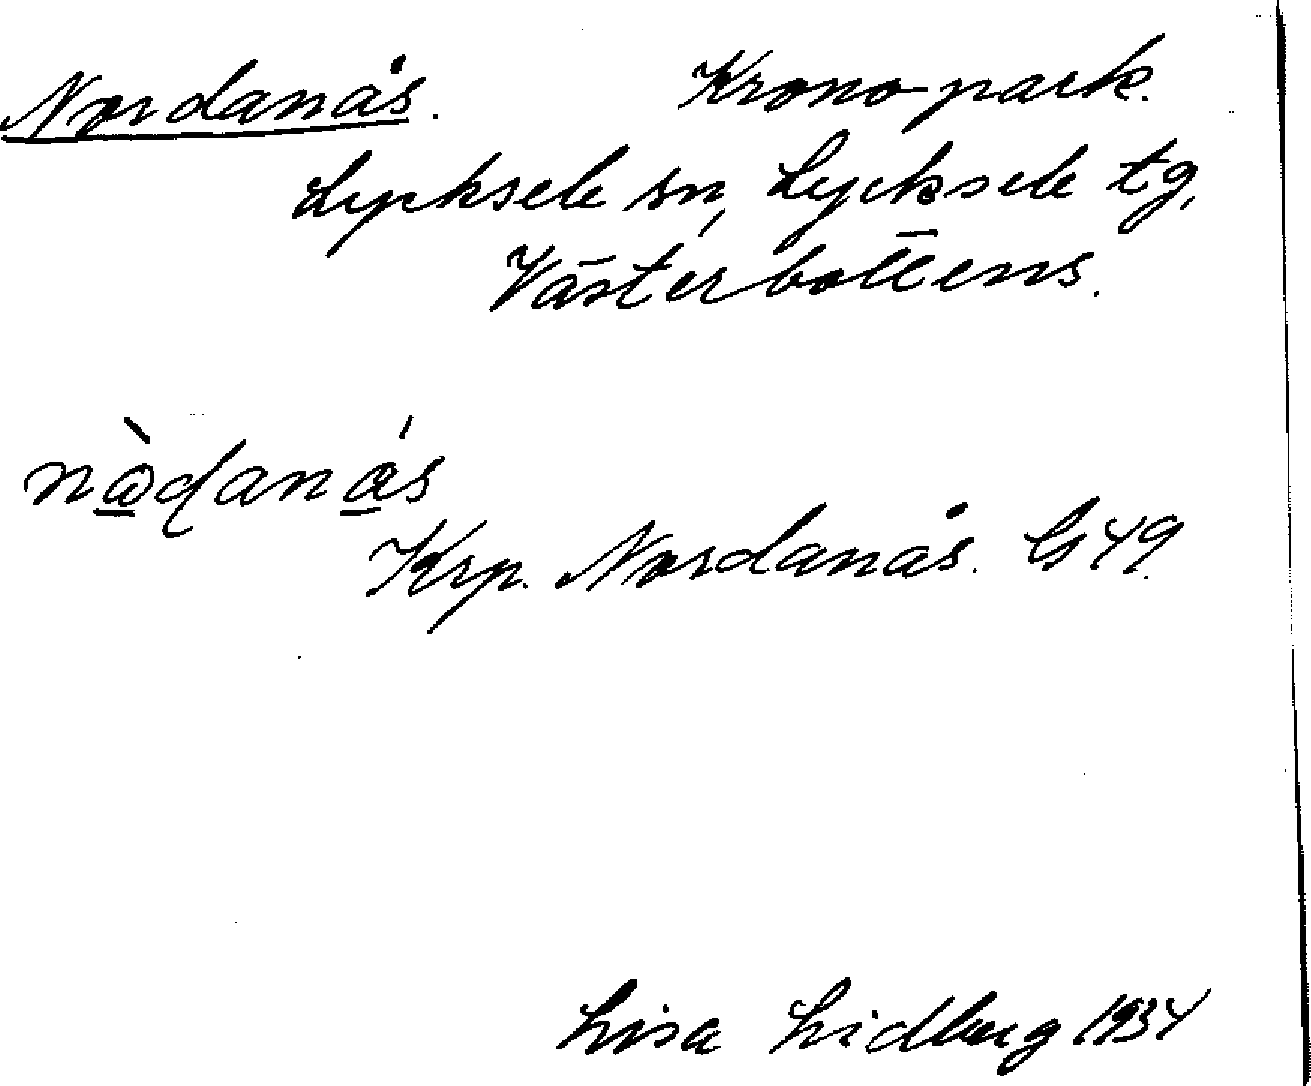 Nordanås. Kronopark.
Lycksele sn, Lycksele tg,
Västerbottens.
nòɖanás
Krp. Nordanås. G 49.
Lisa Lidberg 1934